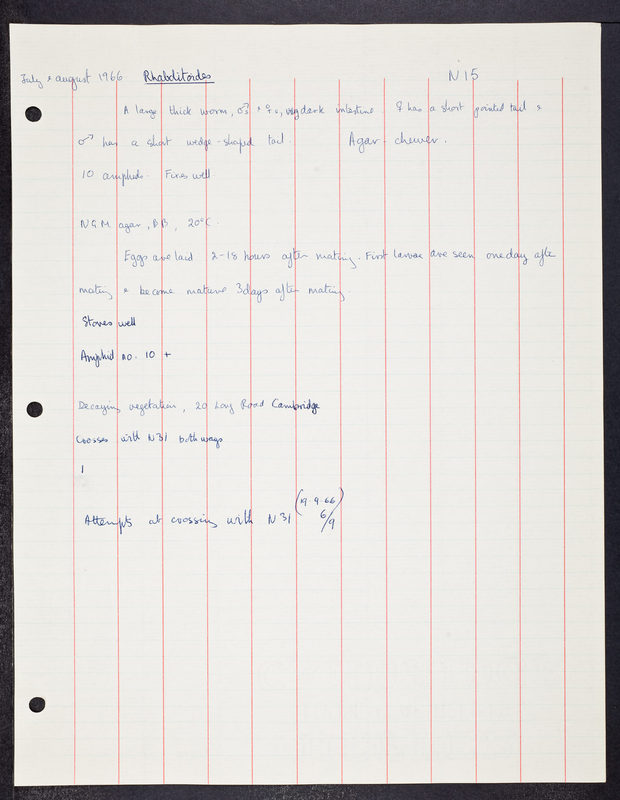 July & august 1966 Rhabditoides N15
A large thick worm, ♂s & ♀s, very dark intestine. ♀ has a short pointed tail &
♂ has a short wedge-shaped tail. Agar-chewer.
10 amphids. Fixes well
N.G.M. agar, BB, 20°C.
Eggs are laid 2-18 hours after mating. First larvae are seen one day afte
mating & become mature 3 days after mating.
Stores well
Amphid no. 10 +
Decaying vegetation, 20 Long Road Cambridge
Crosses with N31 both ways
1
Attempts at crossing with N31 (19.9.66)
6/9